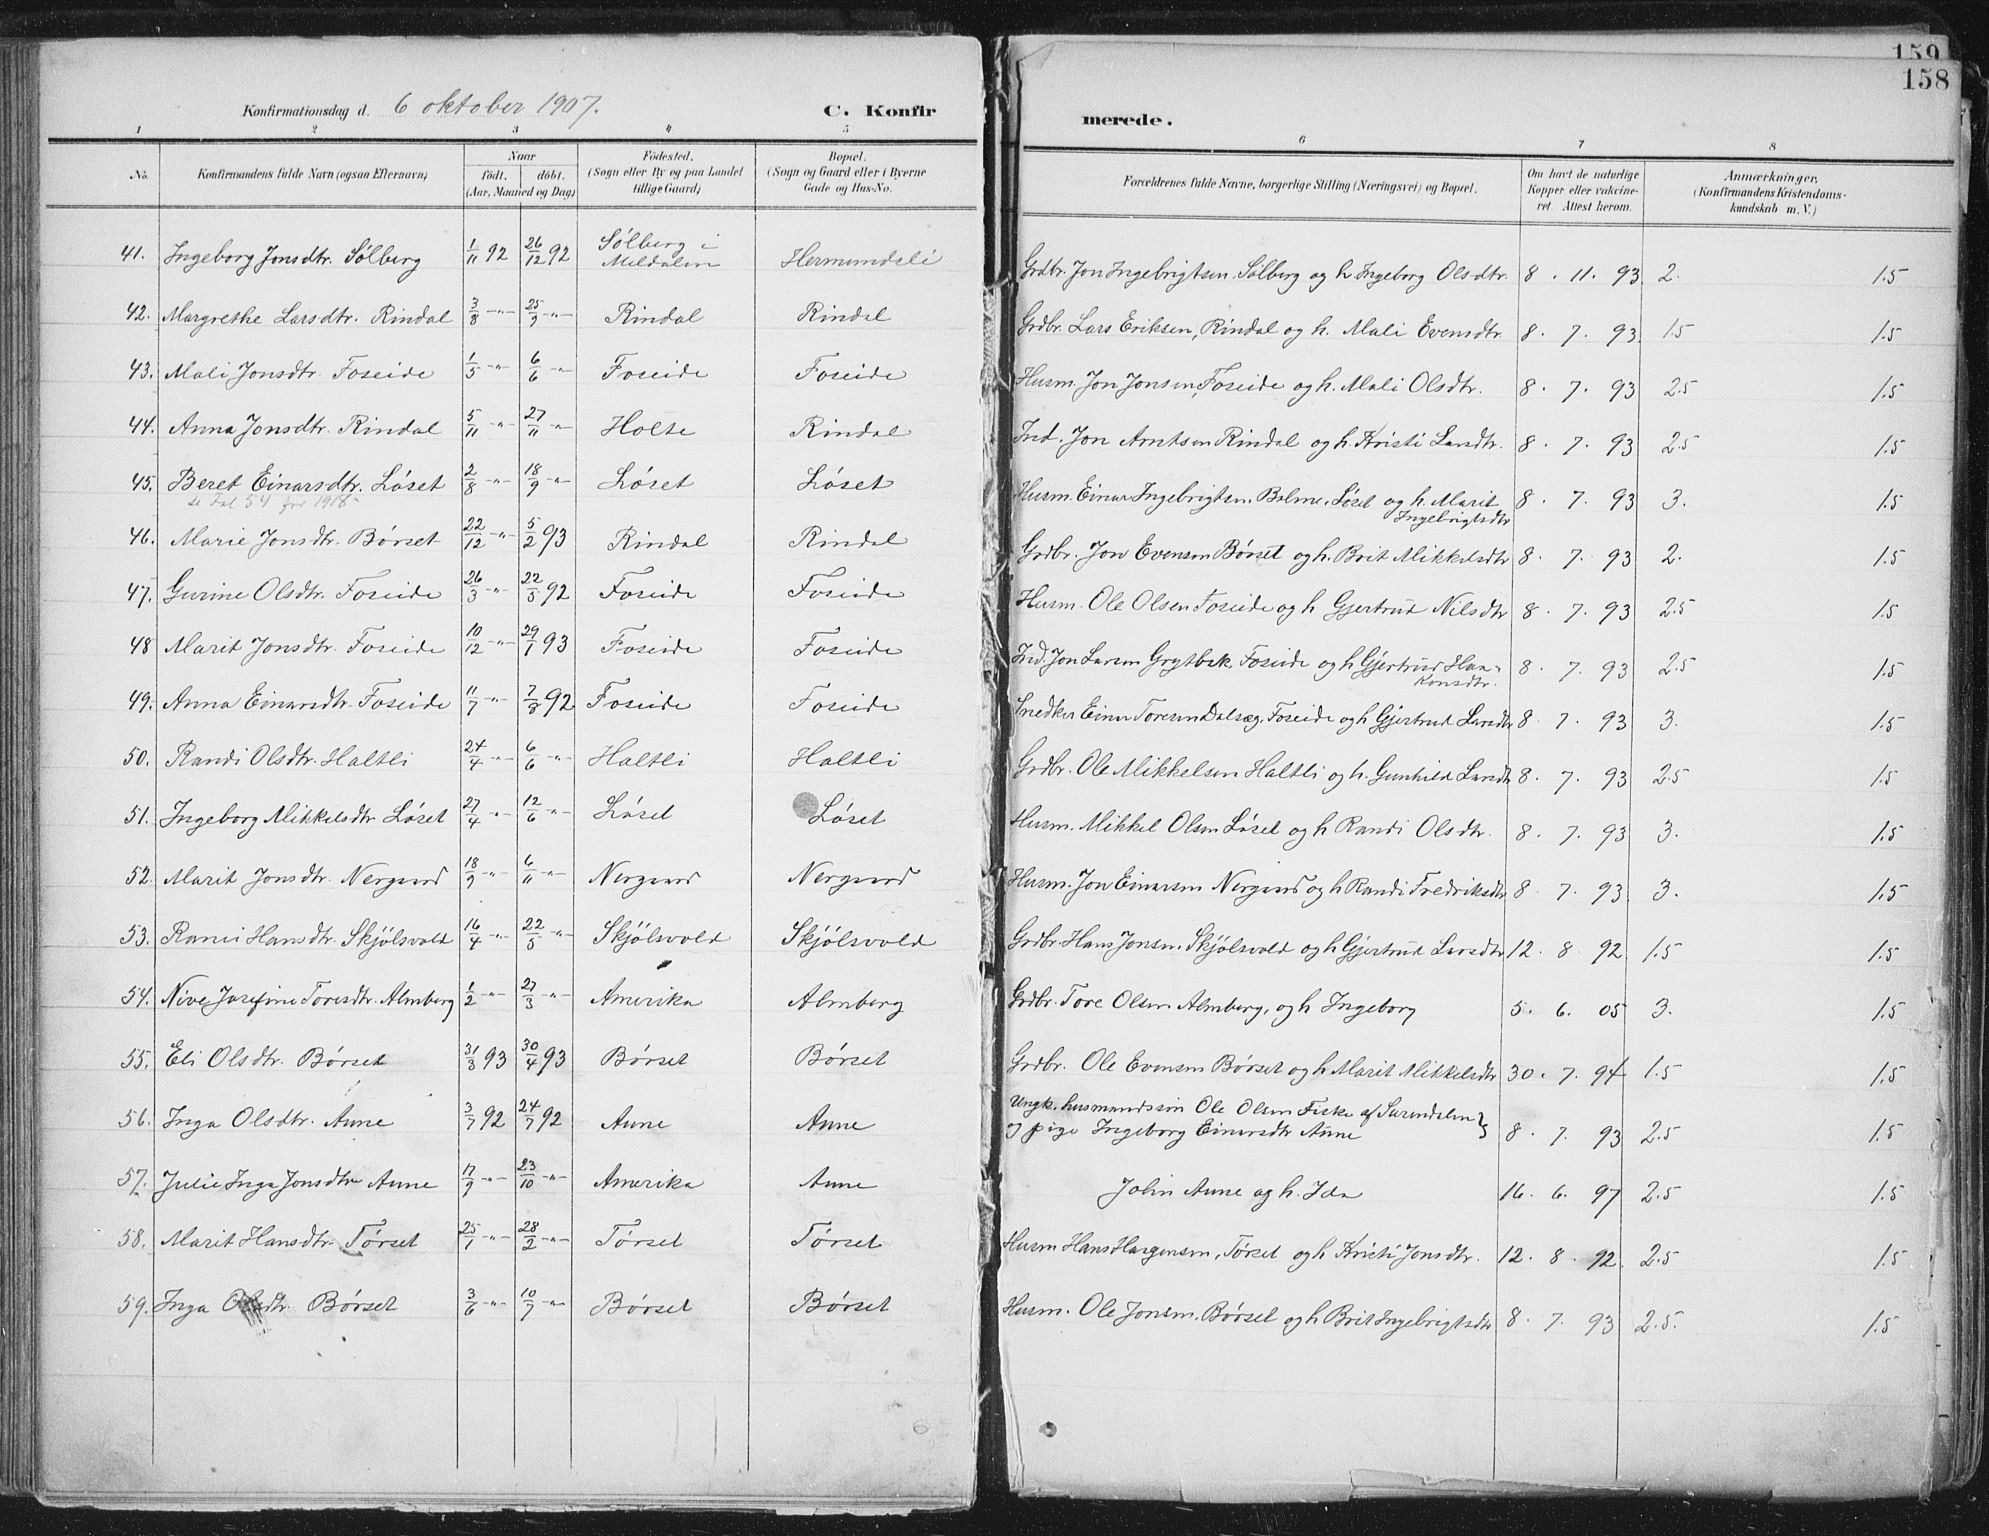 159
158
Konfirmationsdag d. 6 oktober 1907. C. Konfirmerede.
1 2 3 4 5 6 7 8
No. Konfirmandens fulde Navn (ogsaa Efternavn) Naar födt. döbt. (Aar, Maaned og Dag) Födested. (Sogn eller By og paa Landet tillige Gaard) Bopæl. (Sogn og Gaard eller i Byerne Gade og Hus-No. Forældrenes fulde Navne, borgerlige Stilling (Næringsvei) og Bopæl. Om havt de naturlige Kopper eller vakcineret. Attest herom. Anmærkninger, (Konfirmandens Kristendomskundskab m. V.)
41. Ingeborg Jonsdtr. Sólberg 1/11 92 26/12 92 Sólberg i Meldalen Hermundsli Grdbr. Jon Ingebrigtsen Sólberg og h. Ingeborg Olsdtr. 8. 11. 93 2. 1.5
42. Margrethe Larsdtr. Rindal 3/8 -"- 25/9 -"- Rindal Rindal Grdbr. Lars Eriksen, Rindal og h. Mali Evensdtr. 8. 7. 93. 1.5 1.5
43. Mali Jonsdtr. Foseide 1/5 -"- 6/6 -"- Foseide Foseide Husm. Jon Jonsen, Foseide og h. Mali Olsdtr. 8. 7. 93 2.5 1.5
44. Anna Jonsdtr. Rindal 5/11 -"- 27/11 -"- Holte Rindal Ind. Jon Arntsen Rindal og h. Kristi Larsdtr. 8. 7. 93 2.5 1.5
45. Beret Einarsdtr. Løset 2/8 -"- 18/9 -"- Løset Løset Husm. Einar Ingebrigtsen Bolme, Løset og h. Marit Ingebrigtsdtr 8. 7. 93 3. 1.5
se dal 54 for 1918
46. Marie Jonsdtr. Børset 22/12 -"- 5/2 93 Rindal Rindal Grdbr. Jon Evensen Børset og h. Brit Mikkelsdtr 8. 7. 93 2. 1.5
47. Gurine Olsdtr. Foseide 26/3 -"- 22/5 92 Foseide Foseide Husm. Ole Olsen Foseide og h Gjertrud Nilsdtr 8. 7. 93 2.5 1.5
48 Marit Jonsdtr. Foseide 10/12 -"- 29/1 93 Foseide Foseide Ind. Jon Larsen Grytbak, Foseide og h Gjertrud Haakonsdtr. 8. 7. 93 2.5 1.5
49. Anna Einarsdtr. Foseide 11/7 -"- 7/8 92 Foseide Foseide Snedker Einar Toresen Dalsæg, Foseide og h Gjertrud Larsdtr 8. 7. 93 3. 1.5
50. Randi Olsdtr. Haltli 24/4 -"- 6/6 -"- Haltli Haltli Grdbr. Ole Mikkelsen Haltli og h. Gunhild Larsdtr 8. 7. 93 2.5 1.5
51. Ingeborg Mikkelsdtr Løset 27/4 -"- 12/6 -"- Løset Løset Husm. Mikkel Olsen Løset og h Randi Olsdtr. 8. 7. 93 3. 1.5
52. Marit Jonsdtr. Nergaard 18/9 -"- 6/11 -"- Nergaard Nergaard Husm. Jon Einarsen Nergaard og h Randi Fredriksdtr 8. 7. 93 3. 1.5
53. Randi Hansdtr. Skjólsvold 16/4 -"- 22/5 -"- Skjólsvold Skjólsvold Grdbr. Hans Jonsen Skjólsvold og h Gjertrud Larsdtr 12. 8. 92. 1.5 1.5
54. Nive Josefine Toresdtr. Almberg 1/2 -"- 27/3 -"- Amerika Almberg Grdbr. Tore Olsen Almberg, og h Ingeborg 5. 6. 05 3. 1.5
55. Eli Olsdtr. Børset 31/3 93 30/4 93 Børset Børset Grdbr. Ole Evensen Børset og h Marit Mikkelsdtr 30. 7. 94 1.5 1.5
56. Inga Olsdtr. Aune 3/7 92 24/7 92 Aune Aune Ungk. husmandssøn Ole Olsen Fiske af Surendalen og pige Ingeborg Einarsdtr Aune 8. 7. 93 2.5 1.5
57. Julie Inga Jonsdtr Aune 17/9 -"- 23/10 -"- Amerika Aune John Aune og h. Ida 16. 6. 97 2.5 1.5
58. Marit Hansdtr. Tørset 25/1 -"- 28/2 -"- Tørset Tørset Husm Hans Hagensen, Tørset og h Kristi Jonsdtr. 12. 8. 92. 2.5 1.5
59. Inga Olsdtr. Børset 3/6 -"- 10/7 -"- Børset Børset Husm. Ole Jonsen, Børset og h Brit Ingebrigtsdtr 8. 7. 93 2.5. 1.5